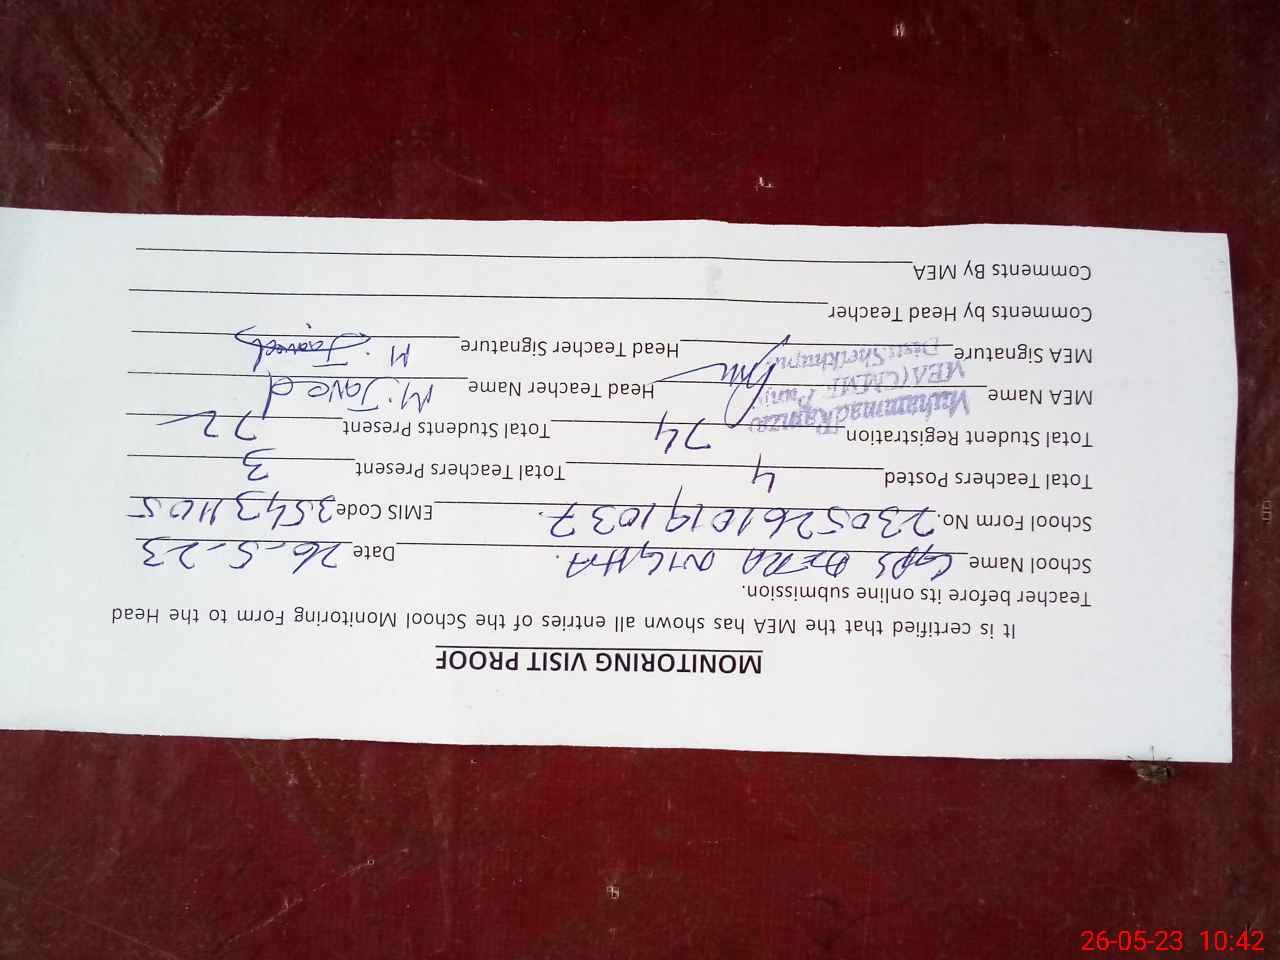 MONITORING VISIT PROOF
It is certified that the MEA has shown all entries of the School Monitoring Form to the Head
Teacher before its online submission.
School Name GPS DERA NIGHA. Date 26-5-23
School Form No. 23052610191037. EMIS Code 35431105
Total Teachers Posted 4 Total Teachers Present 3
Total Student Registration 74 Total Students Present 72
MEA Name Muhammad MEA (CMMF Head Teacher Name M. Javed
MEA Signature Distt: Sheikhupura Head Teacher Signature M. Javed
Comments by Head Teacher
Comments By MEA
26-05-23 10:42